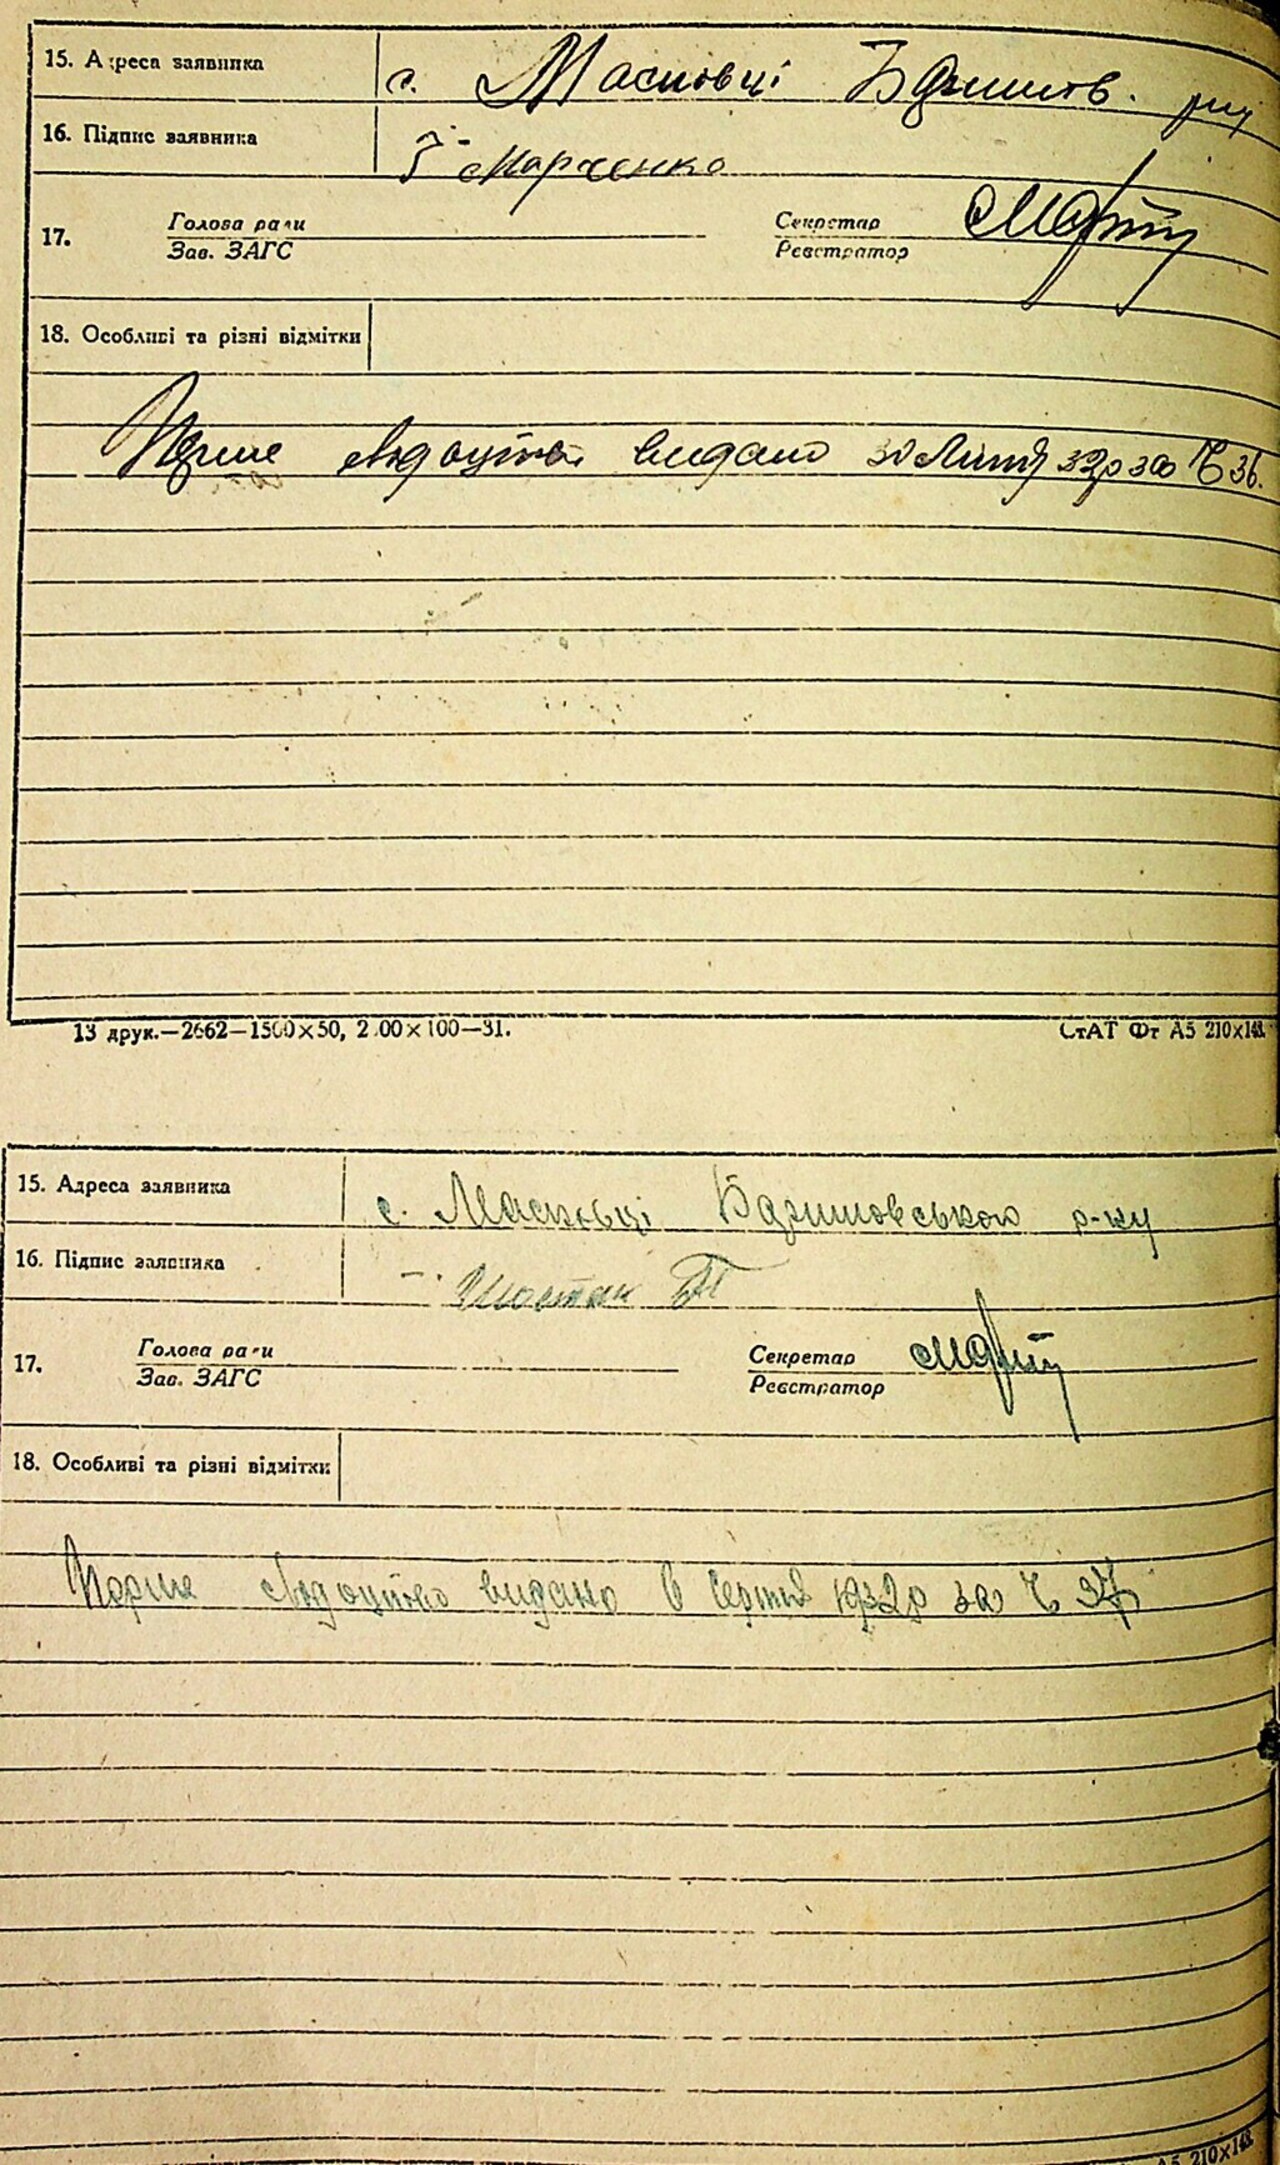 15. Адреса заявника с. Масківці Баришів. р-ну
16. Підпис заявника Марченко
17. Голова ради Секретар
Зав. ЗАГС Реєстратор
18. Особливі та різні відмітки
Перше свідоцтво видано 30 Липня 32р за Ч 36.
13 друк.—2662—1500×50, 2.00×100—31. СтАТ Фт А5 210×148
15. Адреса заявника с. Масківці Баришівського р-ну
16. Підпис заявника Шостак П
17. Голова ради Секретар
Зав. ЗАГС Реєстратор
18. Особливі та різні відмітки
Перше свідоцтво видано 6 Серпня 1932р за Ч 37
А5 210×148